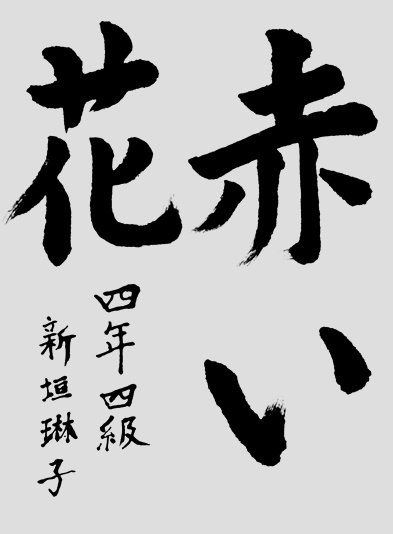 赤い
花
四年四級
新垣琳子